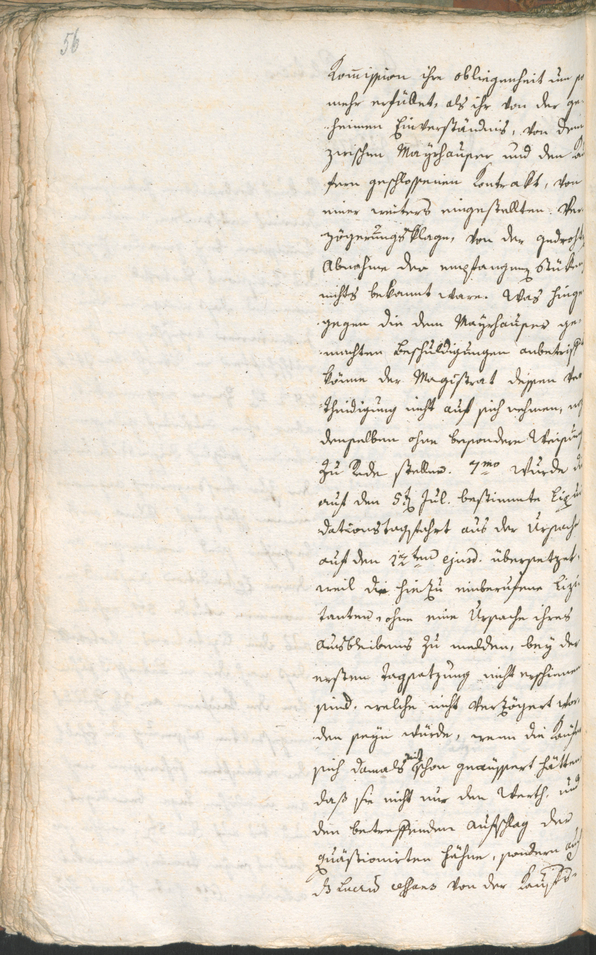 56
Kommission ihre obliegenheit um so
mehr erfüllet, als ihr von der ge-
heimen Einverständnis, von dem
zwischen Mayrhauser und den
fern geschlossenen Kontrakt, von
einer weiters eingestellten Ver-
zögerungsklage, von der gedroht
Abnahme der empfangenen Stüken
nichts bekannt ware. Was hinge-
gegen die dem Mayrhauser ge-
machten Beschuldigungen anbetrift
könne der Magistrat dessen Ver
theidigung nicht auf sich nehmen,
denselben ohne besondere Weisung
zu Rede stellen. 7mo Wurde
auf den 5t Jul. bestimmte Liqui
dationstagfahrt aus der Ursache
auf den 22ten ejusd. übersetzet,
weil die hiezu einberufene Lizi
tanten, ohne eine Ursache ihres
Ausbleibens zu melden, bey der
ersten Tagsatzung nicht erschienen
sind. welche nicht verzögert wor-
den seyn würde, wenn die Käufer
sich damals schon geäussert hätten
daß sie nicht nur den Werth und
den betreffenden Aufschlag der
quästionirten Hähne, sondern auch
Lucrum cessans von der